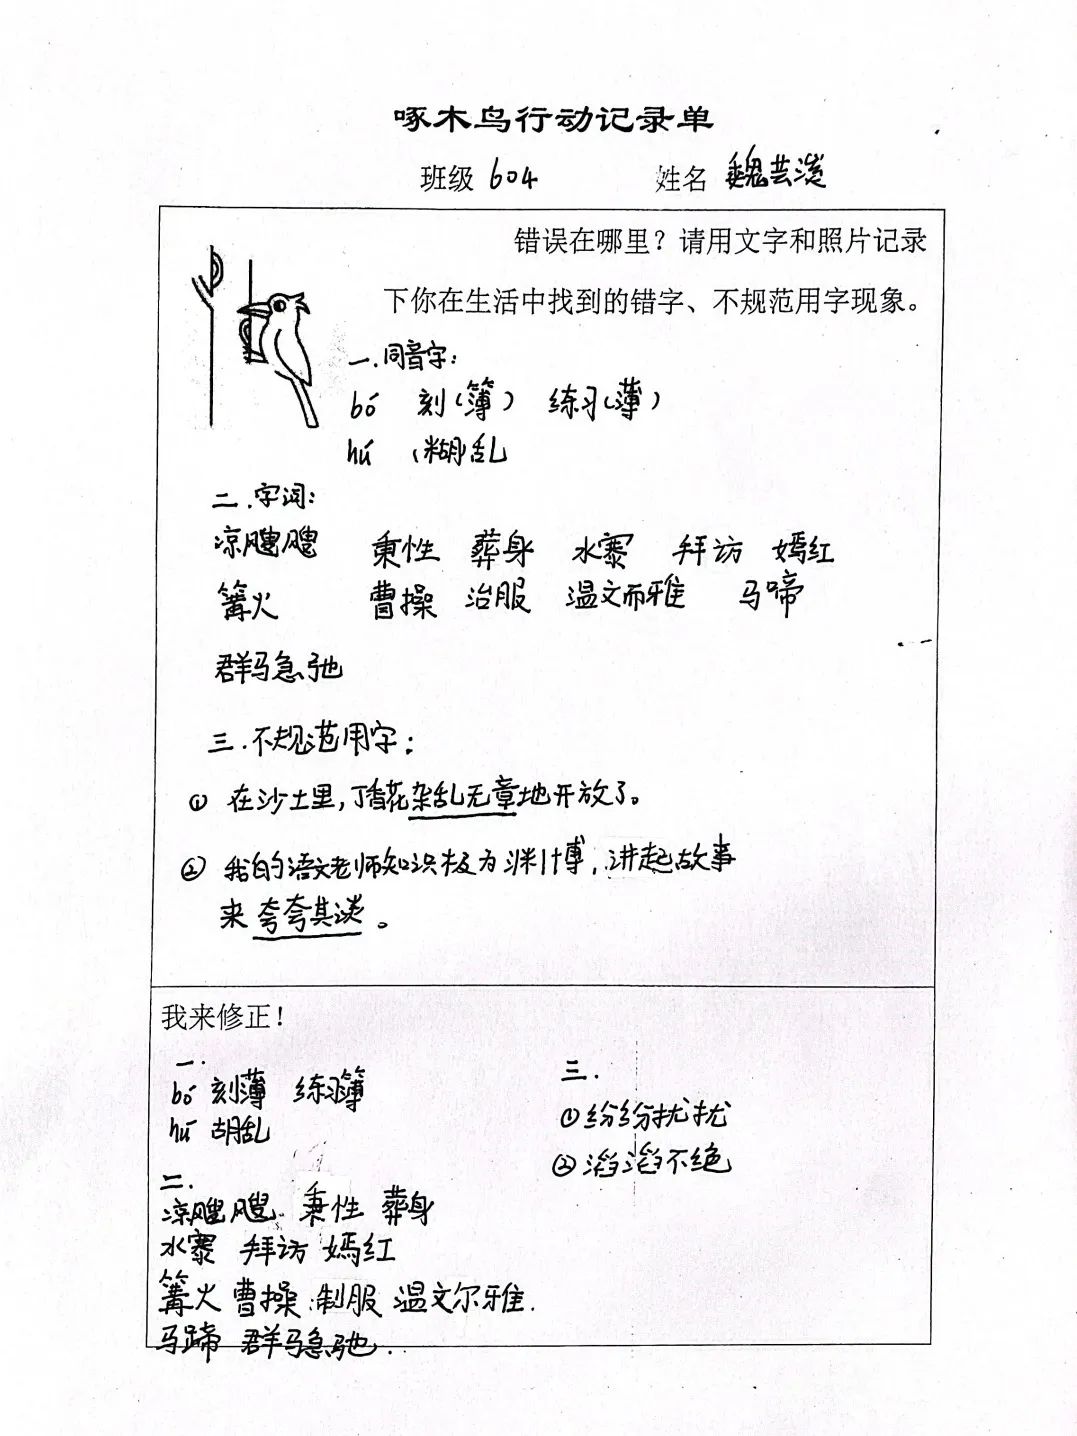 啄木鸟行动记录单
班级 604 姓名 魏芸漩
错误在哪里？请用文字和照片记录
下你在生活中找到的错字、不规范用字现象。
一.同音字：
bó 刻（簿） 练习（薄）
hú （糊）乱
二.字词：
凉飕飕 秉性 葬身 水寨 拜访 嫣红
篝火 曹操 治服 温文而雅 马啼
群马急弛
三.不规范用字：
① 在沙土里，丁香花杂乱无章地开放了。
② 我的语文老师知识极为渊博，讲起故事
来夸夸其谈。
我来修正！
一.
bó 刻薄 练习簿
hú 胡乱
二.
凉飕飕 秉性 葬身
水寨 拜访 嫣红
篝火 曹操 制服 温文尔雅.
马蹄 群马急驰.
三.
①纷纷扰扰
②滔滔不绝